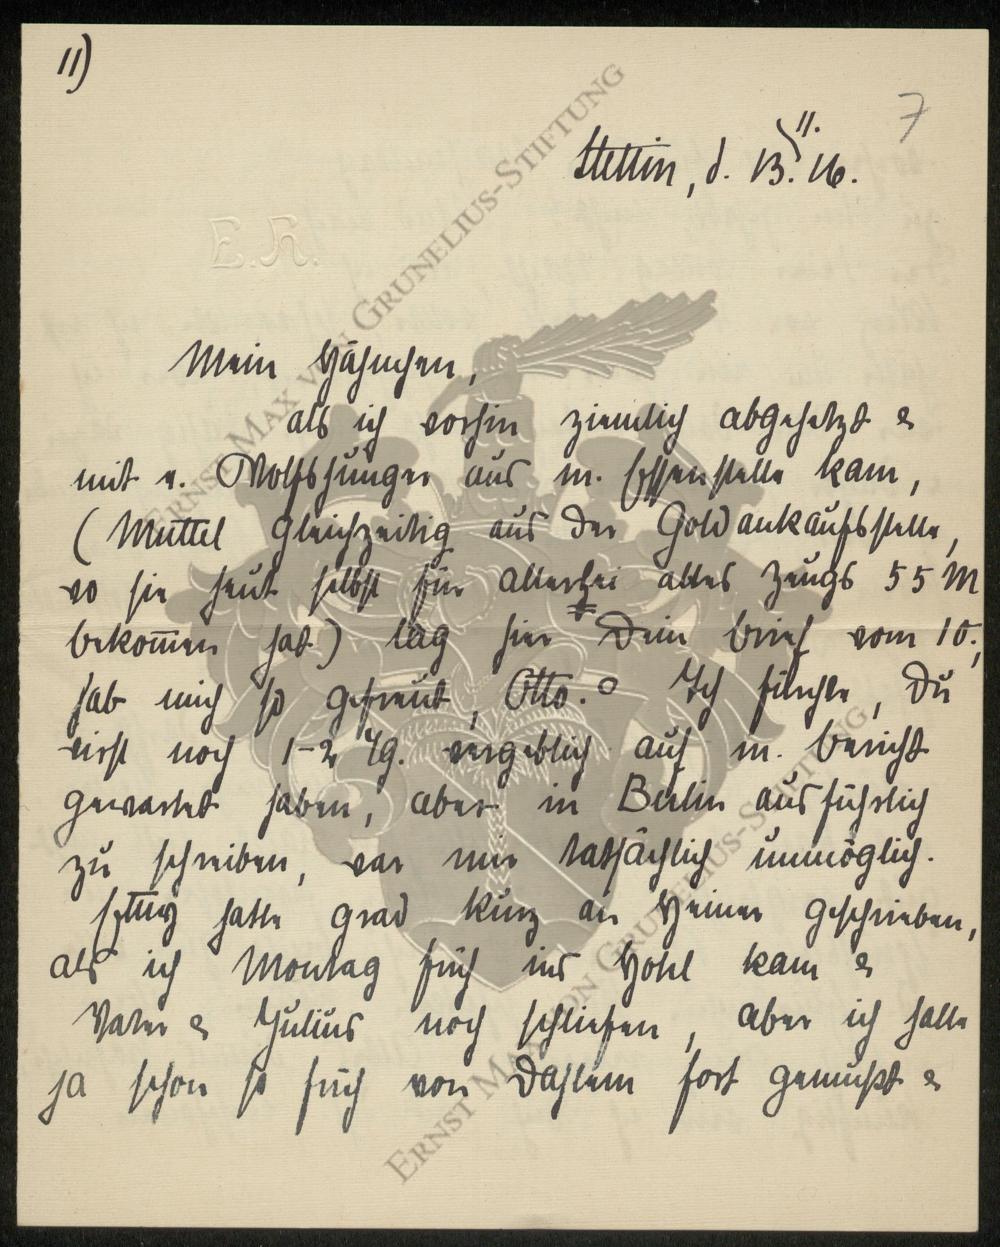 11)
7
Stettin, d. 13. 11. 16.
E.R.
Mein Hähnchen,
als ich vorhin ziemlich abgehetzt &
mit e. Wolfshunger aus m. Essenstelle kam,
(Muttel gleichzeitig aus der Goldankaufsstelle,
wo sie heut selbst für allerhei altes Zeugs 55 M
bekom̅en hat) lag hier Dein Brief vom 10.,
hab mich so gefreut, Otto. Ich fürchte, Du
wirst noch 1-2 Tg. vergeblich auf m. Bericht
gewartet haben, aber in Berlin ausführlich
zu schreiben, war mir tatsächlich unmöglich.
hatte grad kurz an Heiner geschrieben,
als ich Montag früh ins Hotel kam &
Vater & Julius noch schliefen, aber ich hatte
ja schon so früh von Dahlem fort gemußt &
ERNST MAX VON GRUNELIUS-STIFTUNG
ERNST MAX VON GRUNELIUS-STIFTUNG